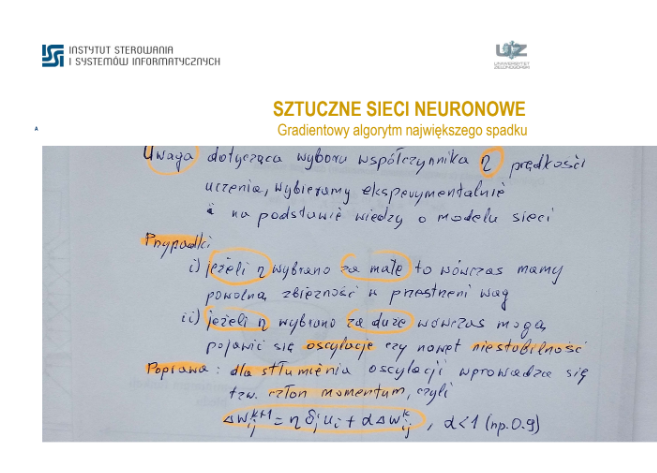 INSTYTUT STEROWANIA
I SYSTEMÓW INFORMATYCZNYCH
UZ
UNIWERSYTET
ZIELONOGÓRSKI
SZTUCZNE SIECI NEURONOWE
Gradientowy algorytm największego spadku
Uwaga dotycząca wyboru współczynnika η prędkości
uczenia, wybieramy eksperymentalnie
i na podstawie wiedzy o modelu sieci
Przypadki
i) jeżeli η wybrano za małe to wówczas mamy
powolną zbieżność w przestrzeni wag
ii) jeżeli η wybrano za duże wówczas mogą
pojawić się oscylacje czy nawet niestabilność
Poprawa: dla stłumienia oscylacji wprowadza się
tzw. człon momentum, czyli
Δw_ij^(k+1) = η δ_j u_i + α Δw_ij^k, α<1 (np. 0.9)